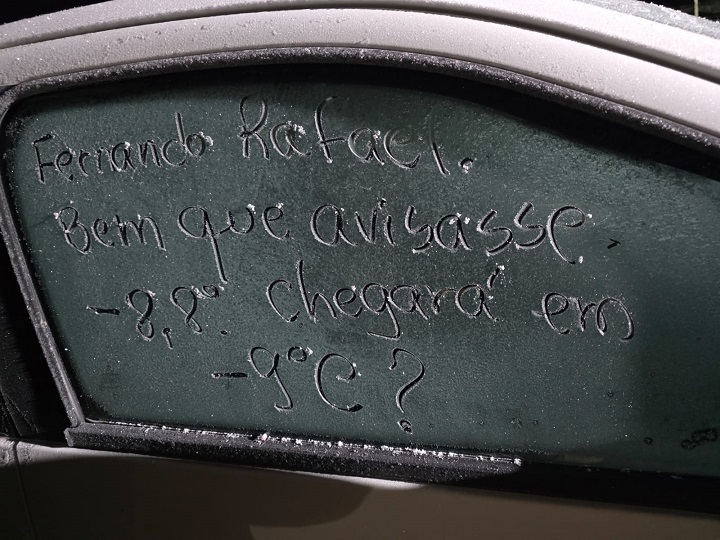 Fernando Rafael.
Bem que avisasse.
-8,8º. chegará em
-9ºC?